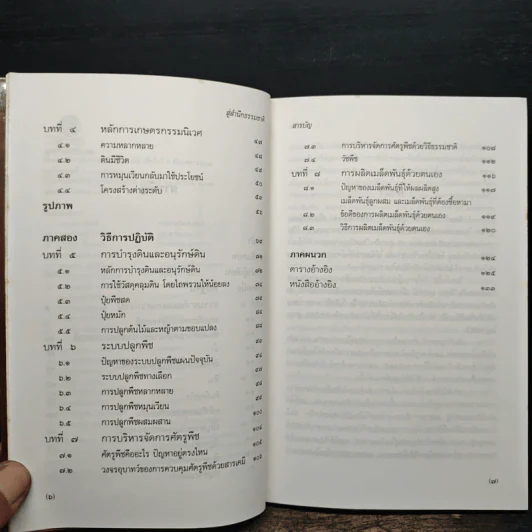 สู่สำนึกธรรมชาติ
บทที่ ๔ หลักการเกษตรกรรมนิเวศ
๔.๑ ความหลากหลาย
๔.๒ ดินมีชีวิต
๔.๓ การหมุนเวียนกลับมาใช้ประโยชน์
๔.๔ โครงสร้างต่างระดับ
รูปภาพ
ภาคสอง วิธีการปฏิบัติ
บทที่ ๕ การบำรุงดินและอนุรักษ์ดิน
๕.๑ หลักการบำรุงดินและอนุรักษ์ดิน
๕.๒ การใช้วัสดุคลุมดิน โดยไถพรวนให้น้อยลง
๕.๓ ปุ๋ยพืชสด
๕.๔ ปุ๋ยหมัก
๕.๕ การปลูกต้นไม้และหญ้าตามขอบแปลง
บทที่ ๖ ระบบปลูกพืช
๖.๑ ปัญหาของระบบปลูกพืชแผนปัจจุบัน
๖.๒ ระบบปลูกพืชทางเลือก
๖.๓ การปลูกพืชหลากหลาย
๖.๔ การปลูกพืชหมุนเวียน
๖.๕ การปลูกพืชผสมผสาน
บทที่ ๗ การบริหารจัดการศัตรูพืช
๗.๑ ศัตรูพืชคืออะไร ปัญหาอยู่ตรงไหน
๗.๒ วงจรอุบาทว์ของการควบคุมศัตรูพืชด้วยสารเคมี
(๖)
สารบัญ
๗.๓ การบริหารจัดการศัตรูพืชด้วยวิธีธรรมชาติ ๑๐๘
๗.๔ วัชพืช ๑๑๒
บทที่ ๘ การผลิตเมล็ดพันธุ์ด้วยตนเอง ๑๑๖
๘.๑ ปัญหาของเมล็ดพันธุ์ที่ให้ผลผลิตสูง
เมล็ดพันธุ์ลูกผสม และเมล็ดพันธุ์ที่ต้องซื้อหามา
๘.๒ ข้อดีของการผลิตเมล็ดพันธุ์ด้วยตนเอง ๑๑๙
๘.๓ วิธีการผลิตเมล็ดพันธุ์ด้วยตนเอง ๑๒๐
ภาคผนวก ๑๒๔
ตารางอ้างอิง ๑๒๕
หนังสืออ้างอิง ๑๓๓
(๗)